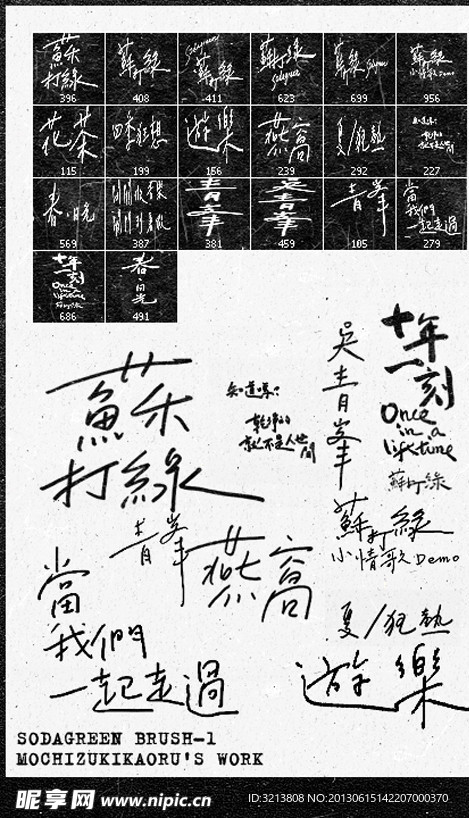 蘇
打綠
396
蘇打綠
408
Sodagreen
蘇打綠
411
蘇打綠
Sodagreen
623
蘇打綠
Sodagreen
699
蘇打綠
小情歌Demo
956
花茶
115
四季狂想
199
遊樂
156
燕窩
239
夏/狂熱
292
知道嗎?
乾淨的
就不是人世間
227
春·日光
569
387
吳青峯
381
吳青峯
459
青峯
105
當
我們
一起走過
279
十年
一刻
Once
in a
lifetime
686
春·日光
491
蘇
打綠
知道嗎?
乾淨的
就不是人世間
吳青峯
十年
一刻
Once
in a
lifetime
蘇打綠
蘇打綠
小情歌Demo
青峯
燕窩
當
我們
一起走過
夏/狂熱
遊樂
SODAGREEN BRUSH-1
MOCHIZUKIKAORU'S WORK
昵享网 www.nipic.cn
ID:3213808 NO:20130615142207000370